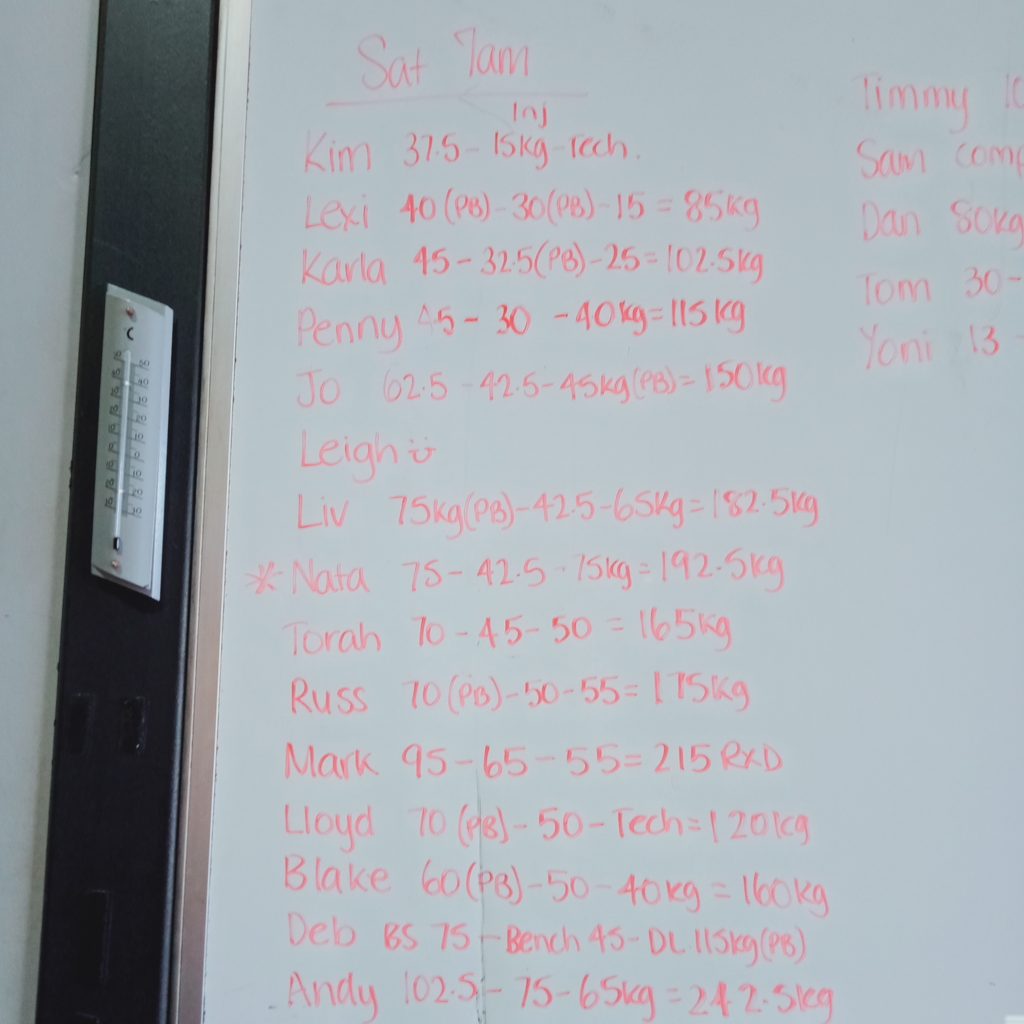 Sat 7am
Inj
Kim 37.5 - 15kg - Tech.
Lexi 40 (PB) - 30 (PB) - 15 = 85kg
Karla 45 - 32.5 (PB) - 25 = 102.5kg
Penny 45 - 30 - 40kg = 115kg
Jo 62.5 - 42.5 - 45kg (PB) = 150kg
Leigh
Liv 75kg (PB) - 42.5 - 65kg = 182.5kg
* Nata 75 - 42.5 - 75kg = 192.5kg
Torah 70 - 45 - 50 = 165kg
Russ 70 (PB) - 50 - 55 = 175kg
Mark 95 - 65 - 55 = 215 RXD
Lloyd 70 (PB) - 50 - Tech = 120kg
Blake 60 (PB) - 50 - 40kg = 160kg
Deb BS 75 - Bench 45 - DL 115kg (PB)
Andy 102.5 - 75 - 65kg = 242.5kg
Timmy
Sam
Dan 80kg
Tom 30 -
Yoni 13 -
°C